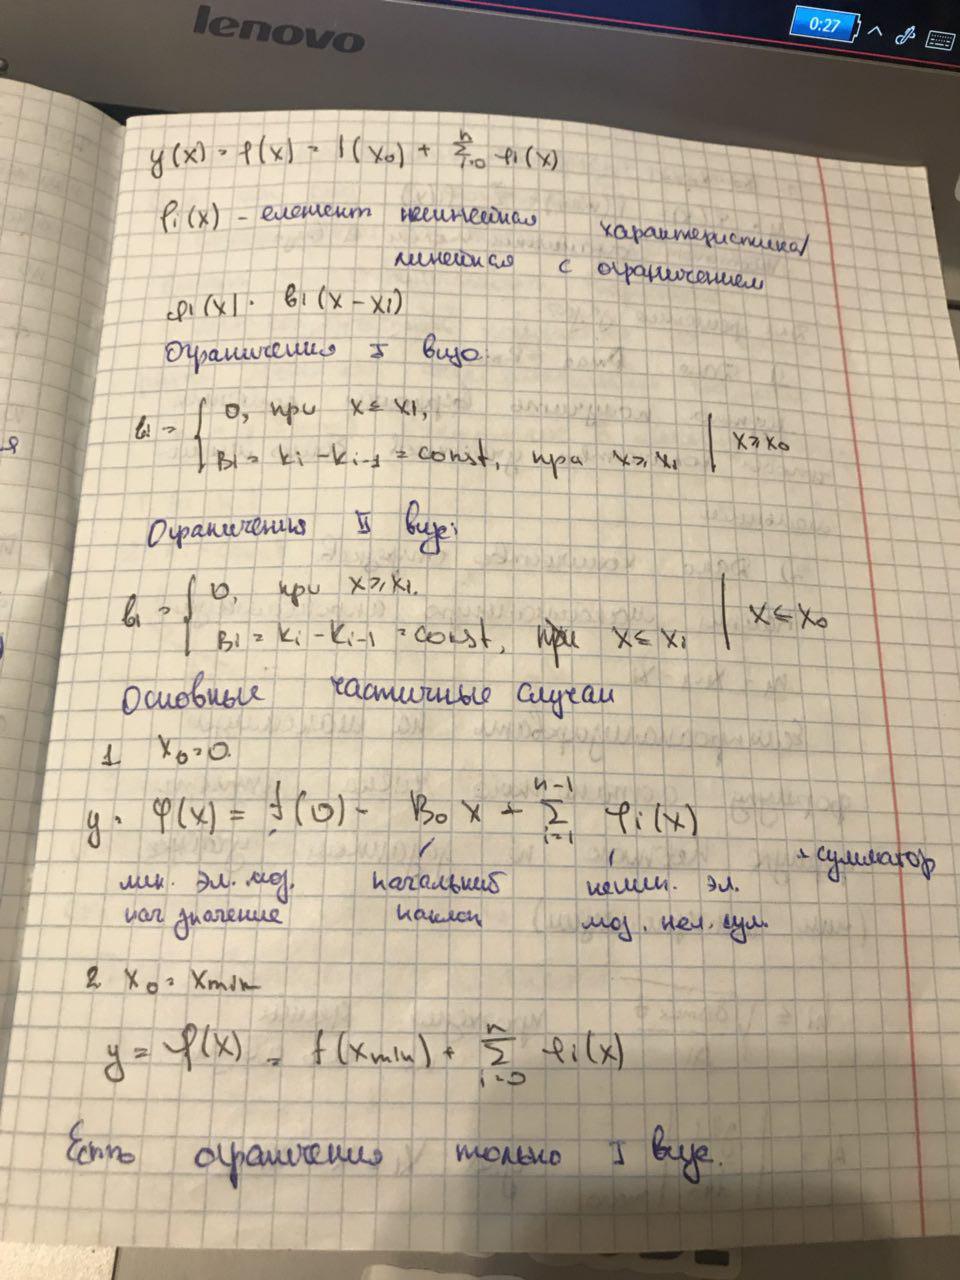 lenovo
0:27
y(x) = φ(x) = f(x₀) + Σ φi(x)
φi(x) - елемент нелинейная характеристика/
линейная с ограничением
φi(x) = bi(x - xi)
Ограничения I вида:
bi = { 0, при x ≤ xi,
Bi = ki - ki-1 = const, при x ≥ xi | x ≥ x₀
Ограничения II вида:
bi = { 0, при x ≥ xi.
Bi = ki - ki-1 = const, при x ≤ xi | x ≤ x₀
Основные частичные случаи
1 x₀ = 0.
y = φ(x) = f(0) - B₀ x + Σ φi(x) n-1 i=1
лин. эл. мод. начальный нелин. эл. + сумматор
нач значение наклон мод. нел. сум.
2 x₀ = xmin
y = φ(x) = f(xmin) + Σ φi(x) n i=0
Есть ограничения только I вида.